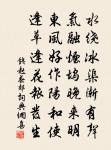 水繞冰渠漸有聲
氣融煙塢晚來明
東風好作陽和使
逢草逢花報發生
錢起春郊詞典網喜